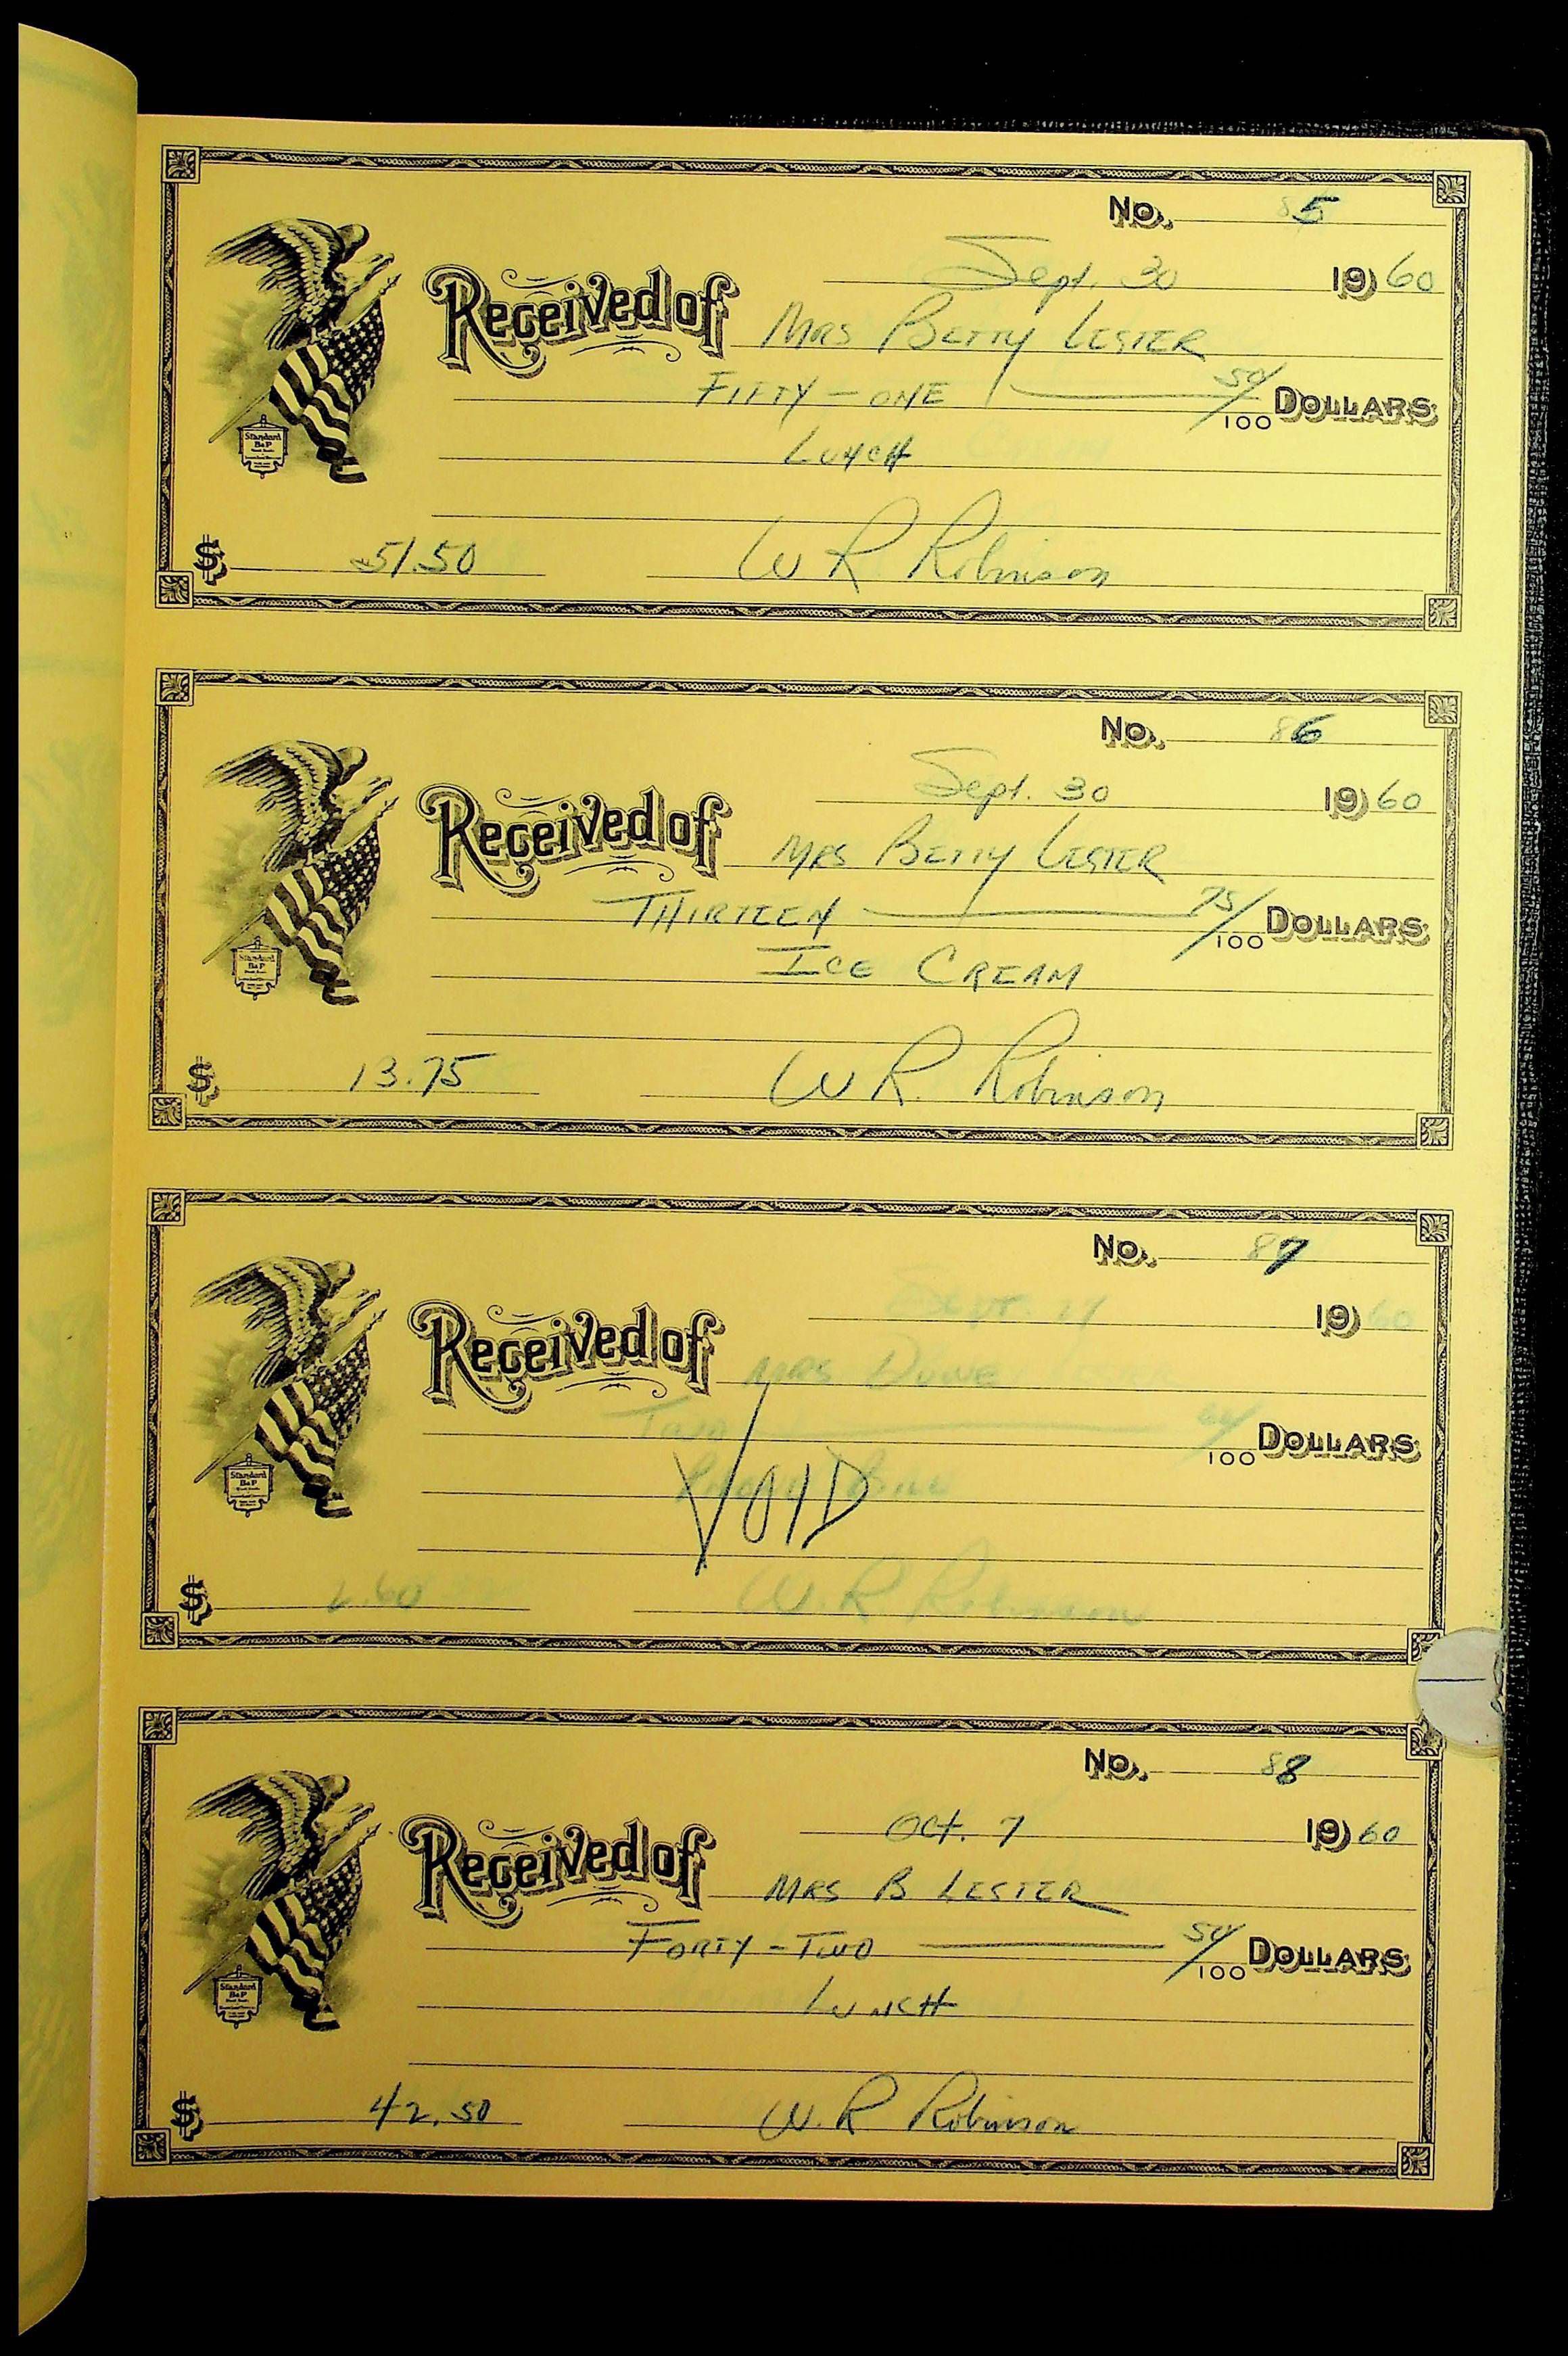 No. 85
Sept. 30 1960
Received of Mrs Betty Lester
Fifty-one 50/100 Dollars
Lunch
Standard B&P
$ 51.50 W R Robinson
No. 86
Sept. 30 1960
Received of Mrs Betty Lester
Thirteen 75/100 Dollars
Ice Cream
Standard B&P
$ 13.75 W R. Robinson
No. 87
Sept. 1960
Received of Mrs
Two 60/100 Dollars
Standard B&P
VOID
$ 2.60 W.R. Robinson
No. 88
Oct. 7 1960
Received of Mrs B Lester
Forty-Two 50/100 Dollars
Lunch
Standard B&P
$ 42.50 W.R Robinson